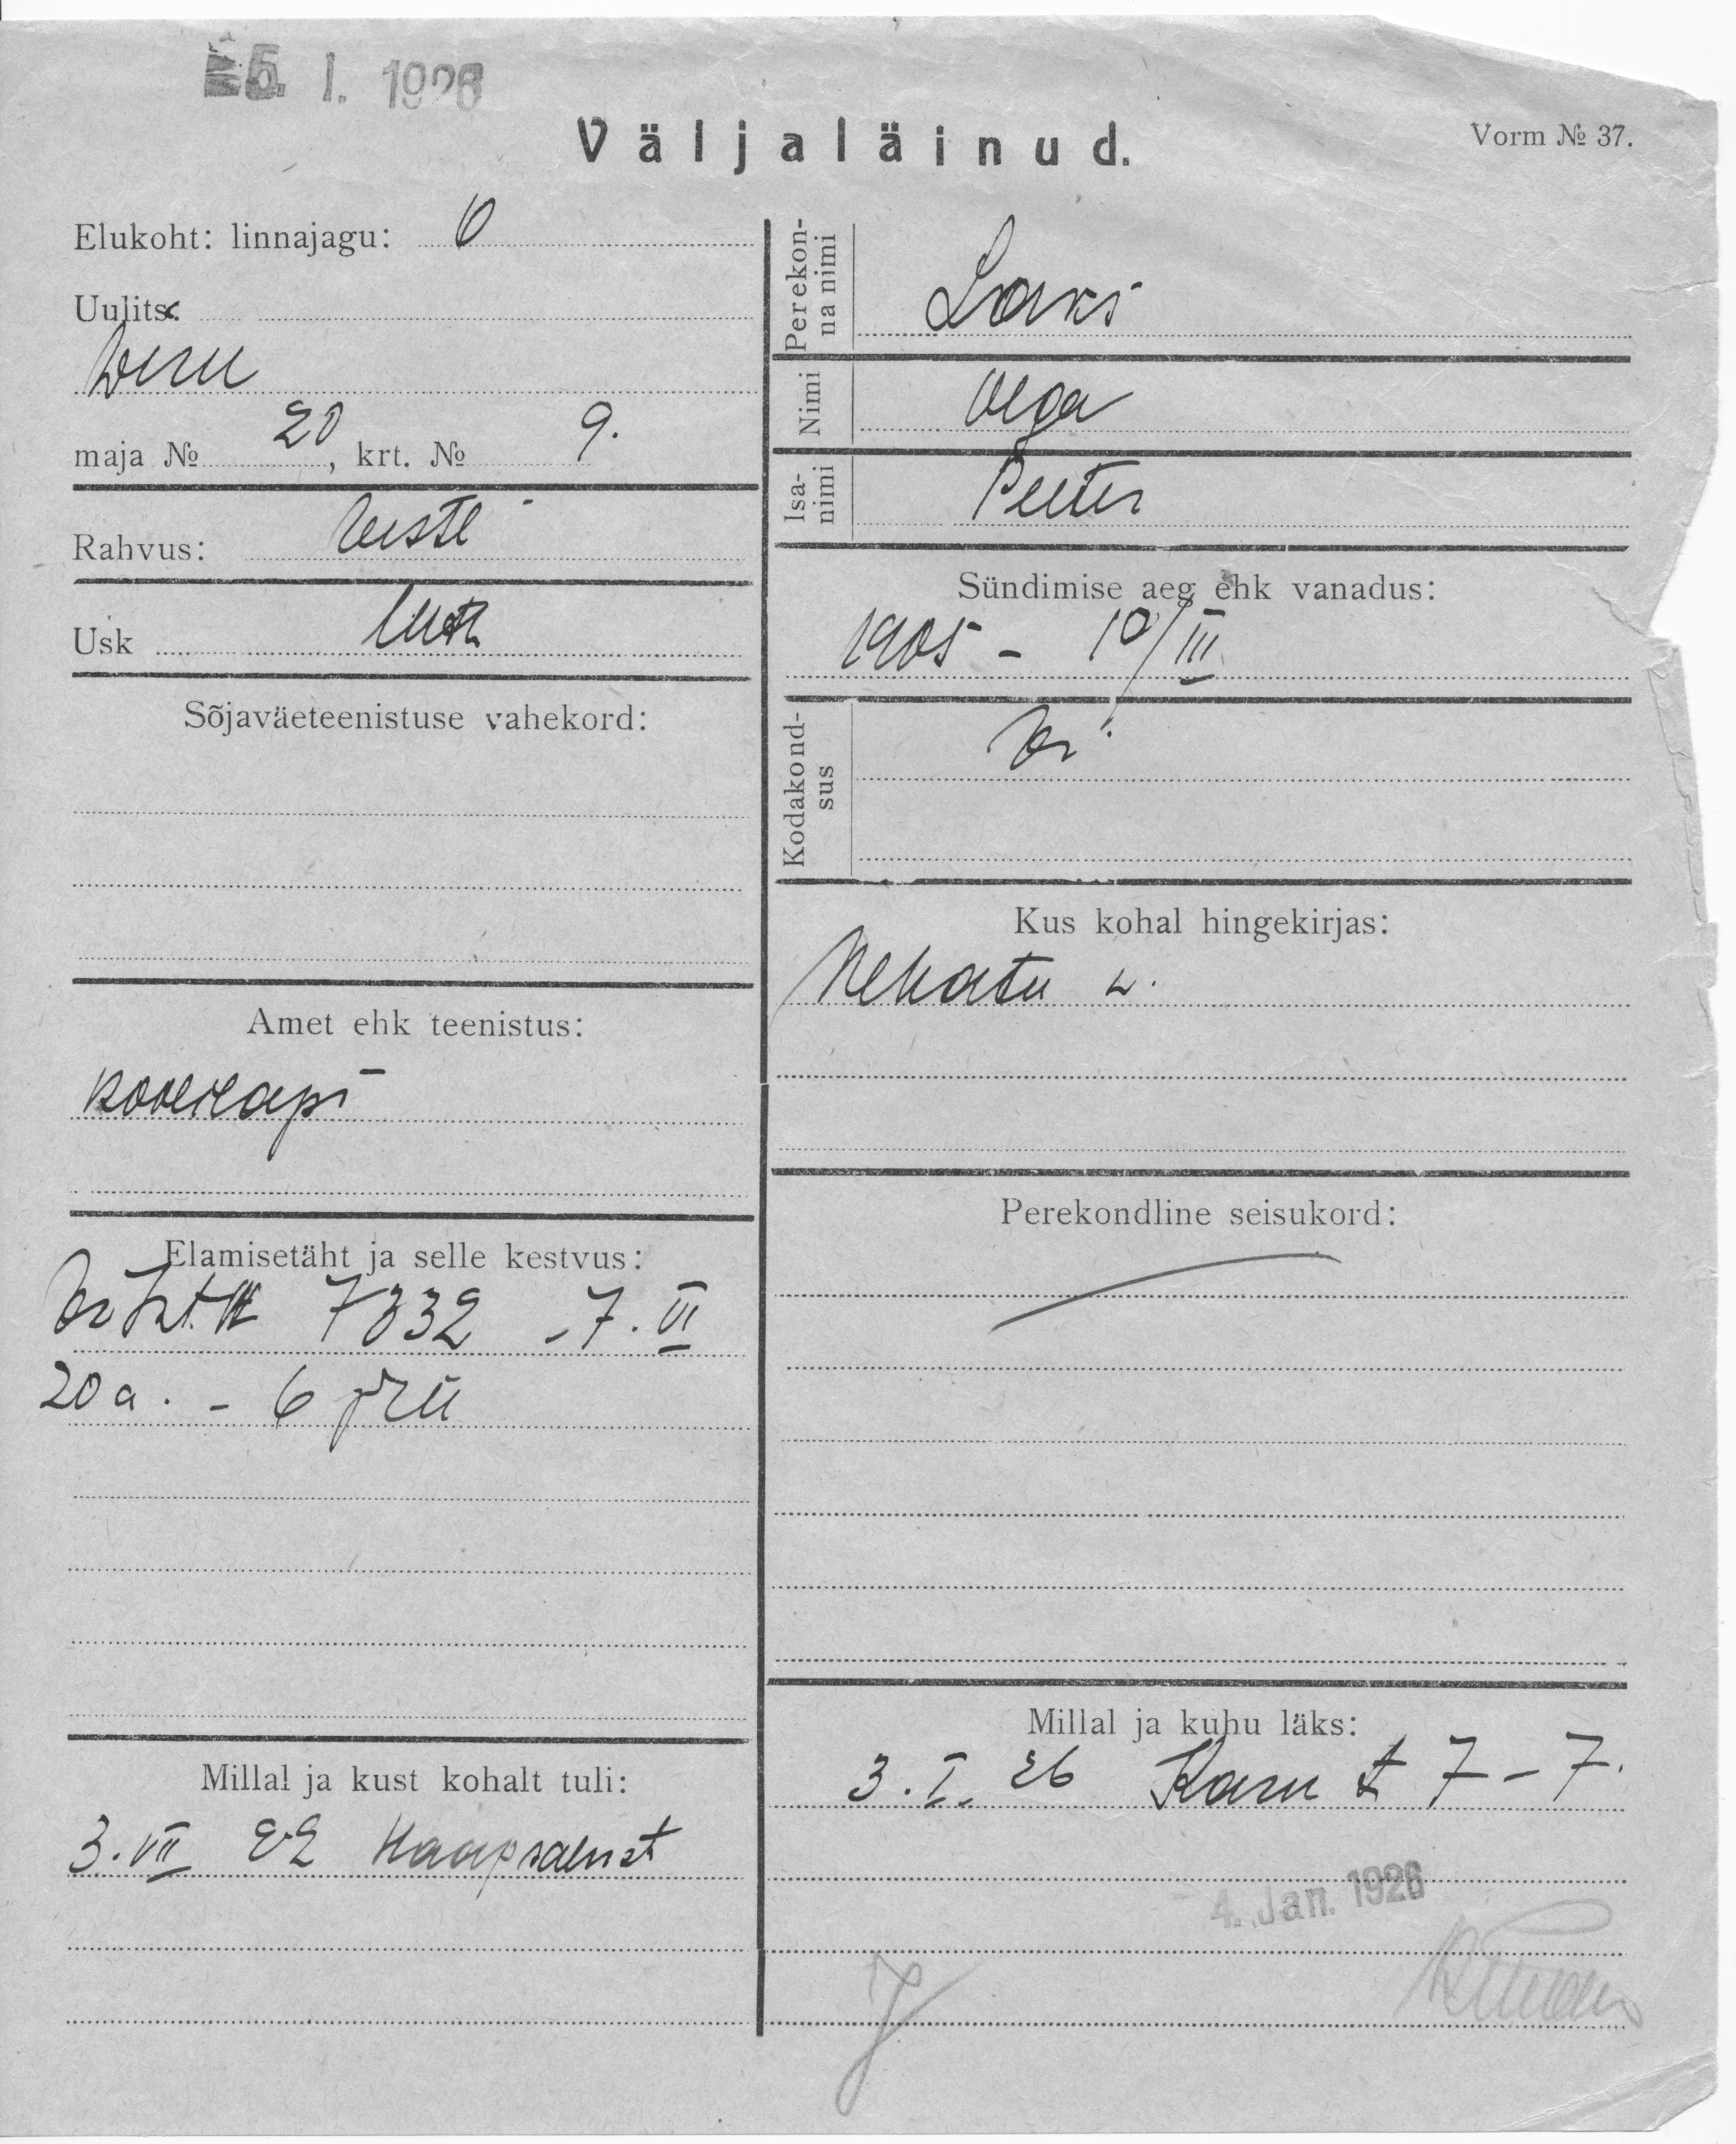 5. I. 1926
Väljaläinud.
Vorm № 37.
Elukoht: linnajagu: 6
Uulits:
Viru
maja № 20, krt. № 9.
Rahvus: Eesti
Usk luth
Sõjaväeteenistuse vahekord:
Amet ehk teenistus:
kooliõpi
Elamisetäht ja selle kestvus:
7332 - 7. VI
20 a. - 6 jrü
Millal ja kust kohalt tuli:
3. VII 22 Haapsalust
Perekonna nimi
Laks
Nimi Olga
Isanimi Peeter
Sündimise aeg ehk vanadus:
1905 - 10/III
Kodakondsus
Ee.
Kus kohal hingekirjas:
Nehatu v.
Perekondline seisukord:
Millal ja kuhu läks:
3. I. 26 Karu t 7-7.
4. Jan. 1926